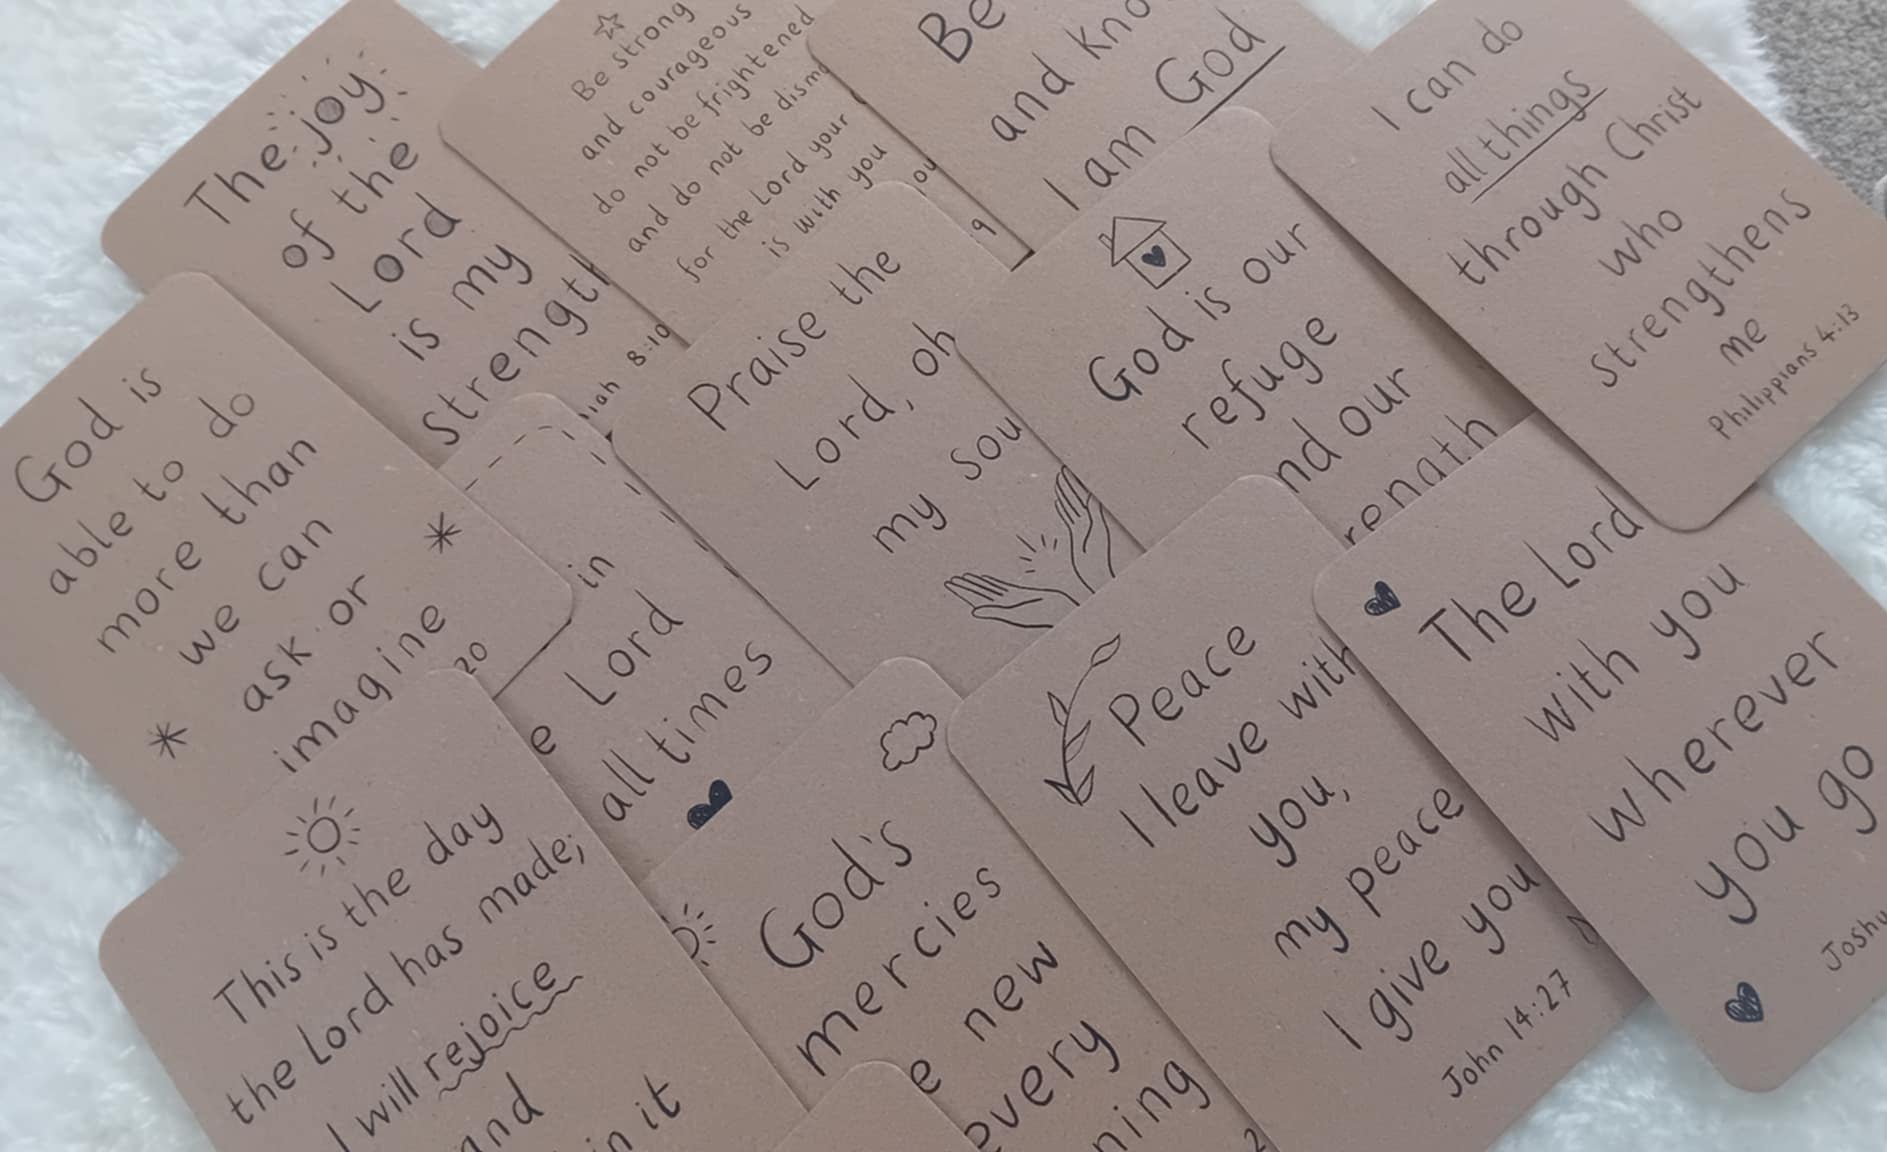 The joy
of the
Lord
is my
Strength
8:10
Be strong
and courageous
do not be frightened
and do not be
for the Lord your
is with you
9
Be
and
I am God
I can do
all things
through Christ
who
strengthens
me
Philippians 4:13
God is
able to do
more than
we can
ask or
imagine
20
in
Lord
all times
Praise the
Lord, oh
my
God is our
refuge
our
This is the day
the Lord has made;
I will rejoice
in it
God's
mercies
new
every
2
Peace
I leave with
you,
my peace
I give you
John 14:27
The Lord
with you
wherever
you go